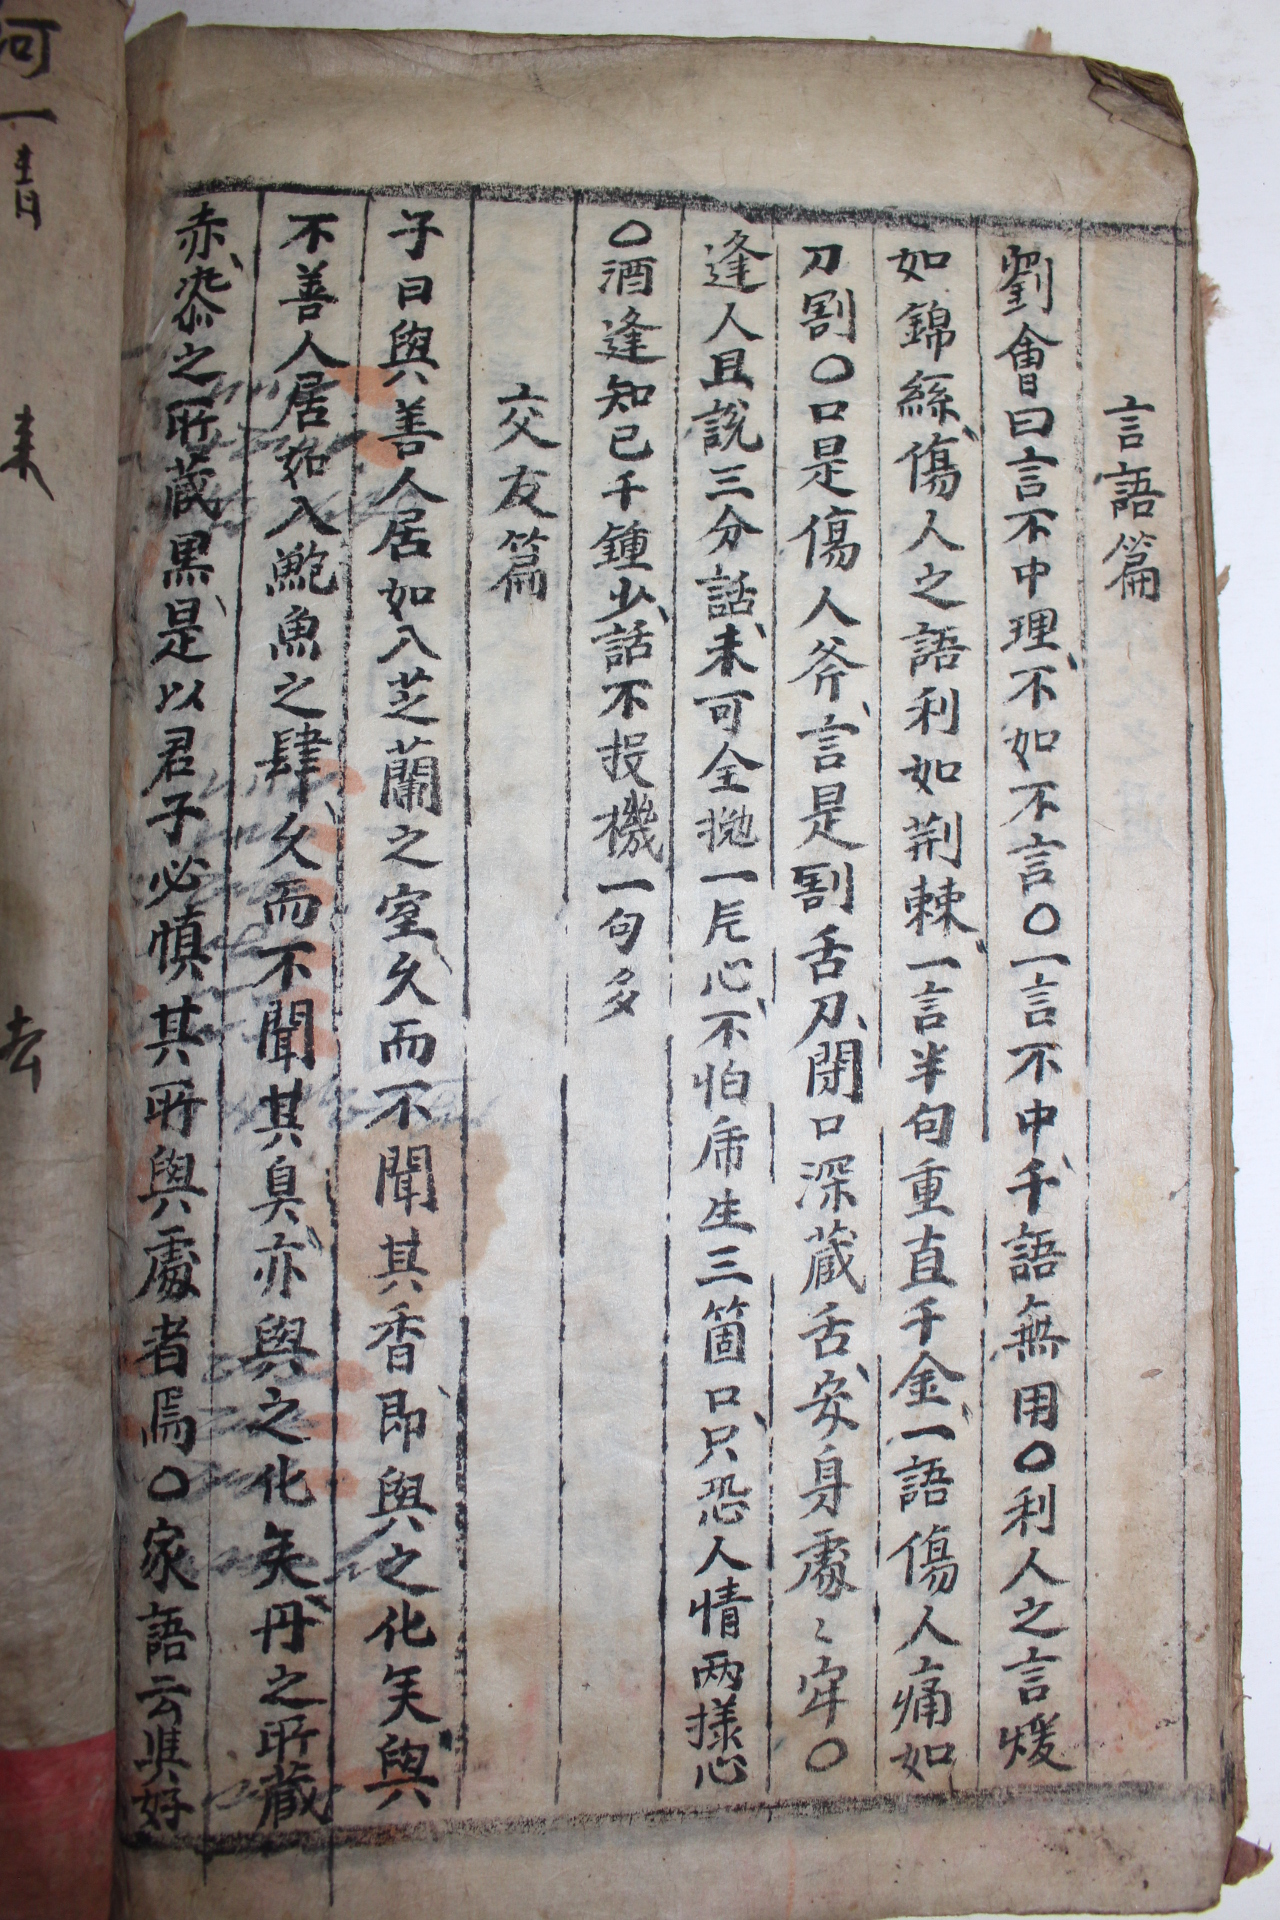 言語篇
劉會曰言不中理不如不言〇一言不中千語無用〇利人之言煖
如錦絲傷人之語利如荆棘一言半句重直千金一語傷人痛如
刀割〇口是傷人斧言是割舌刀閉口深蔵舌安身處〻牢〇
逢人且說三分話未可全抛一片心不怕虎生三箇口只恐人情两樣心
〇酒逢知已千鍾少話不投機一句多
交友篇
子曰與善人居如入芝蘭之室久而不聞其香即與之化矣與
不善人居如入鮑魚之肆久而不聞其臭亦與之化矣丹之所蔵
赤漆之所蔵黑是以君子必慎其所與處者焉〇家語云與好
何一情
来
去